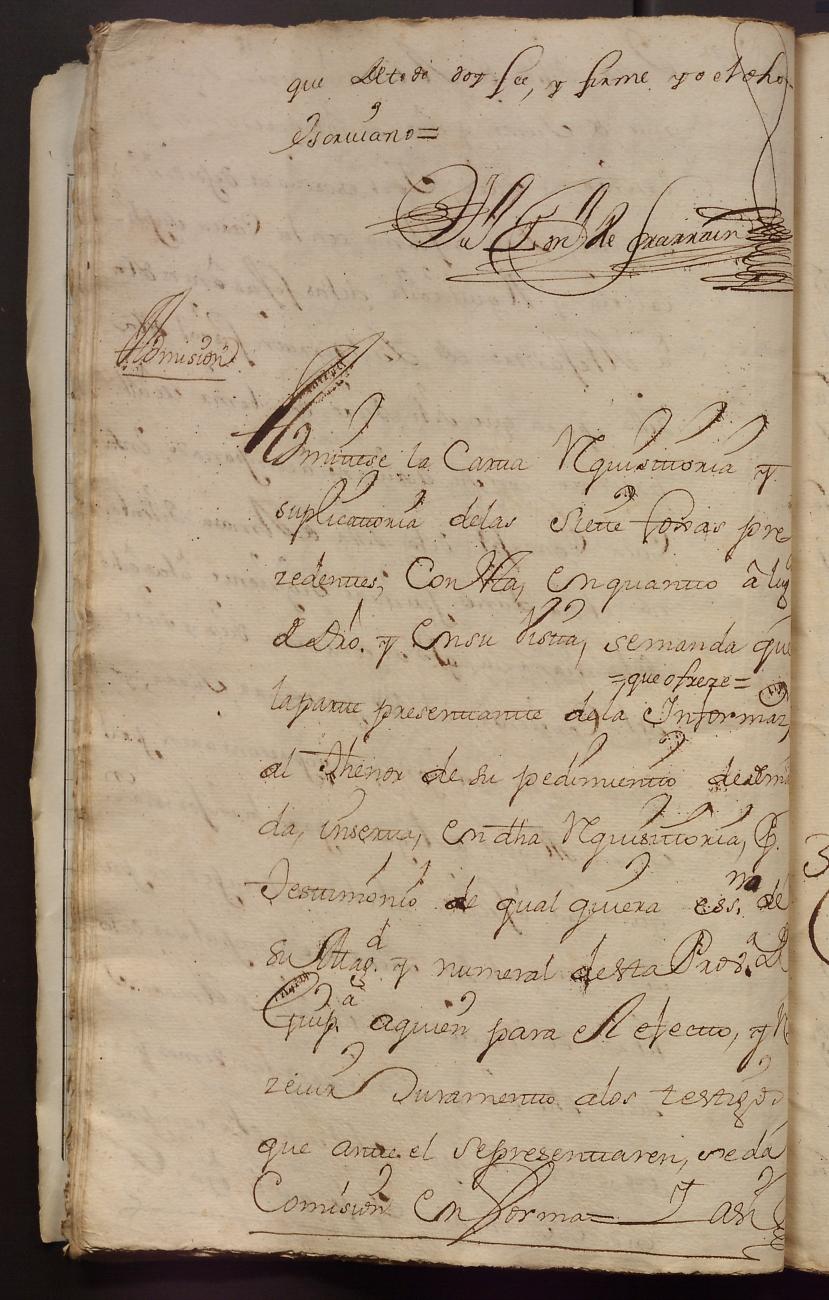 que de todo doy fee, y firme yo el dho
escrivano=
de Ygarrain
Admision
Admittese la Carta Requisittoria y
suplicattoria delas siette fojas pre
zedentes, Con Hta, en quantto â lug
de Dro. y en su Vistta, se manda que
=que ofreze=
la partte presenttantte de la Informaz.
al Thenor de su pedimientto de
da, insertta, en dha Requisittoria, P.
Testtimonio de qual quiera ess.no de
su Magd. y numeral desta Prov.a de
Guip.a a quien para el efectto, y Re
zeivir Juramentto a los testigos
que antte el se presenttaren, se da
Comision en forma= Y asi